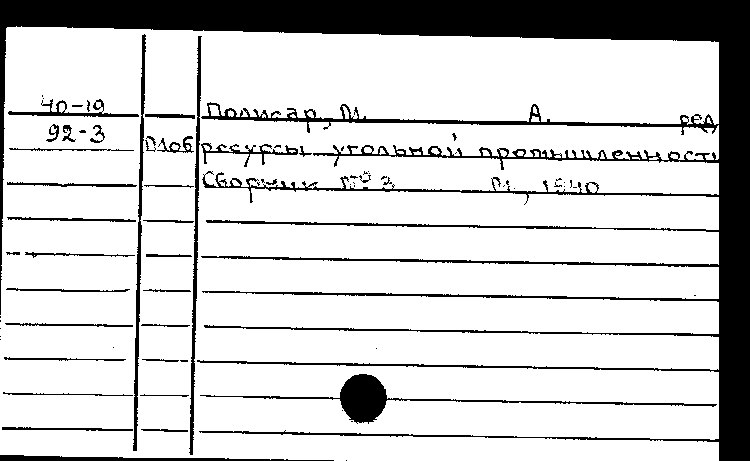 40-19
Полисар, М. А. ред.
92-3
Моб. ресурсы угольной промышленности
Сборник № 3 М., 1940